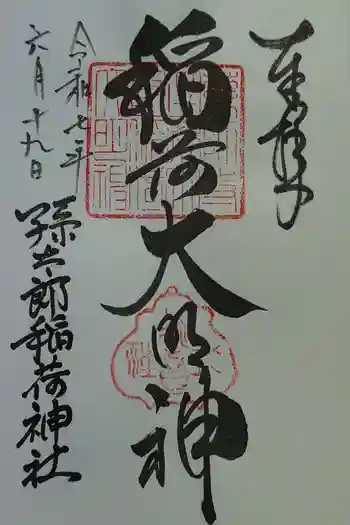 奉拝
稲荷大明神
令和七年
六月十九日
孫太郎稲荷神社